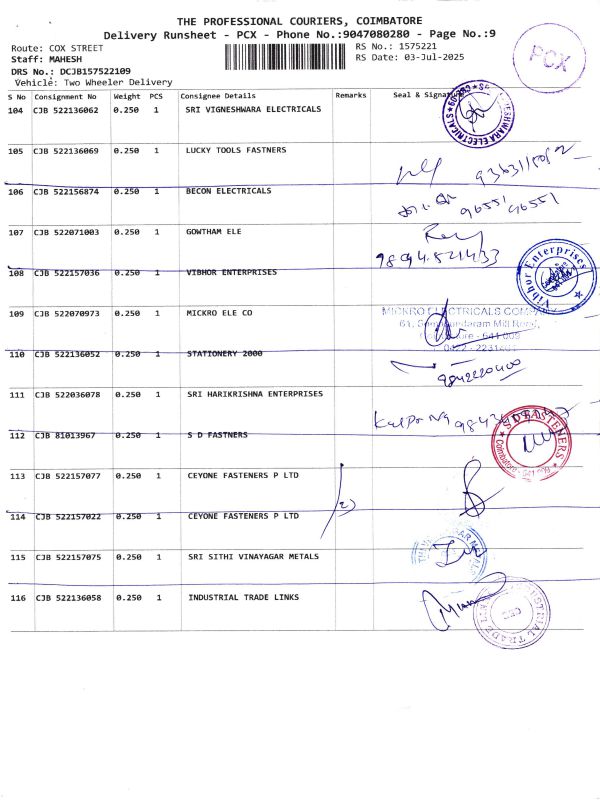 THE PROFESSIONAL COURIERS, COIMBATORE
Delivery Runsheet - PCX - Phone No.:9047080280 - Page No.:9
Route: COX STREET
RS No.: 1575221
Staff: MAHESH
RS Date: 03-Jul-2025
DRS No.: DCJB157522109
Vehicle: Two Wheeler Delivery
PCX
S No Consignment No Weight PCS Consignee Details Remarks Seal & Signature
104 CJB 522136062 0.250 1 SRI VIGNESHWARA ELECTRICALS
105 CJB 522136069 0.250 1 LUCKY TOOLS FASTNERS
106 CJB 522156874 0.250 1 BECON ELECTRICALS
96551 96551
107 CJB 522071003 0.250 1 GOWTHAM ELE
9894.521433
108 CJB 522157036 0.250 1 VIBHOR ENTERPRISES
Vibhor Enterprises
109 CJB 522070973 0.250 1 MICKRO ELE CO
MICKRO ELECTRICALS COMPANY
Mill Road,
- 641 009
110 CJB 522136052 0.250 1 STATIONERY 2000
9842220400
111 CJB 522036078 0.250 1 SRI HARIKRISHNA ENTERPRISES
112 CJB 81013967 0.250 1 S D FASTNERS
S D FASTENERS
Coimbatore - 641 009
113 CJB 522157077 0.250 1 CEYONE FASTENERS P LTD
114 CJB 522157022 0.250 1 CEYONE FASTENERS P LTD
115 CJB 522157075 0.250 1 SRI SITHI VINAYAGAR METALS
116 CJB 522136058 0.250 1 INDUSTRIAL TRADE LINKS